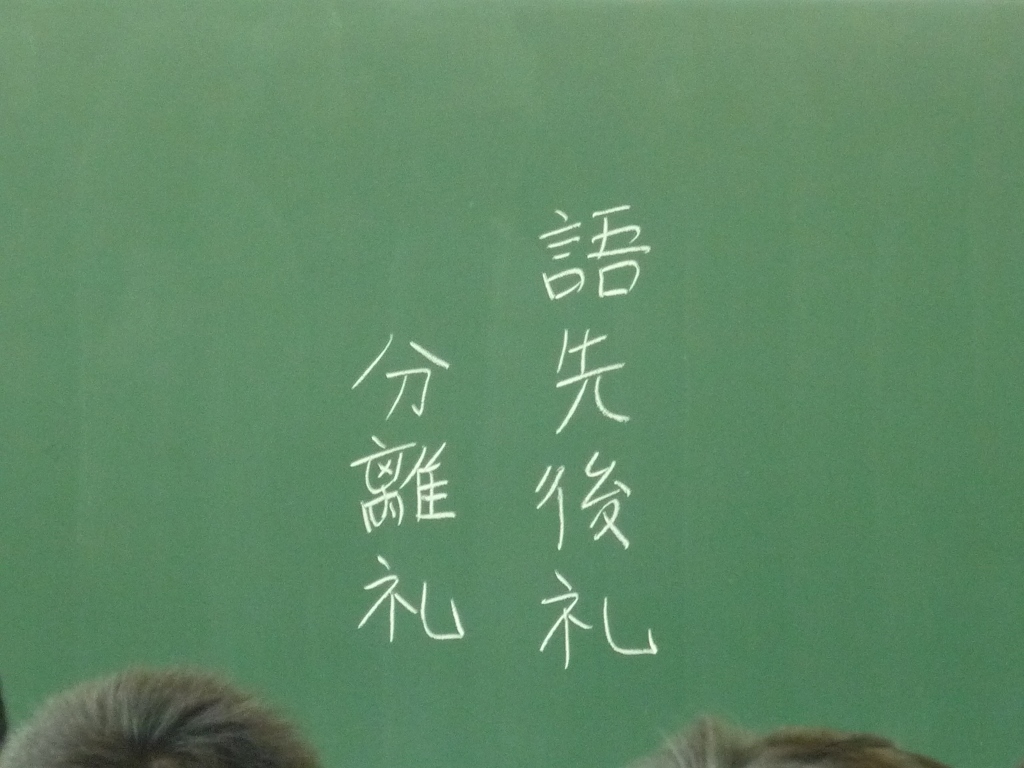 語先後礼
分離礼